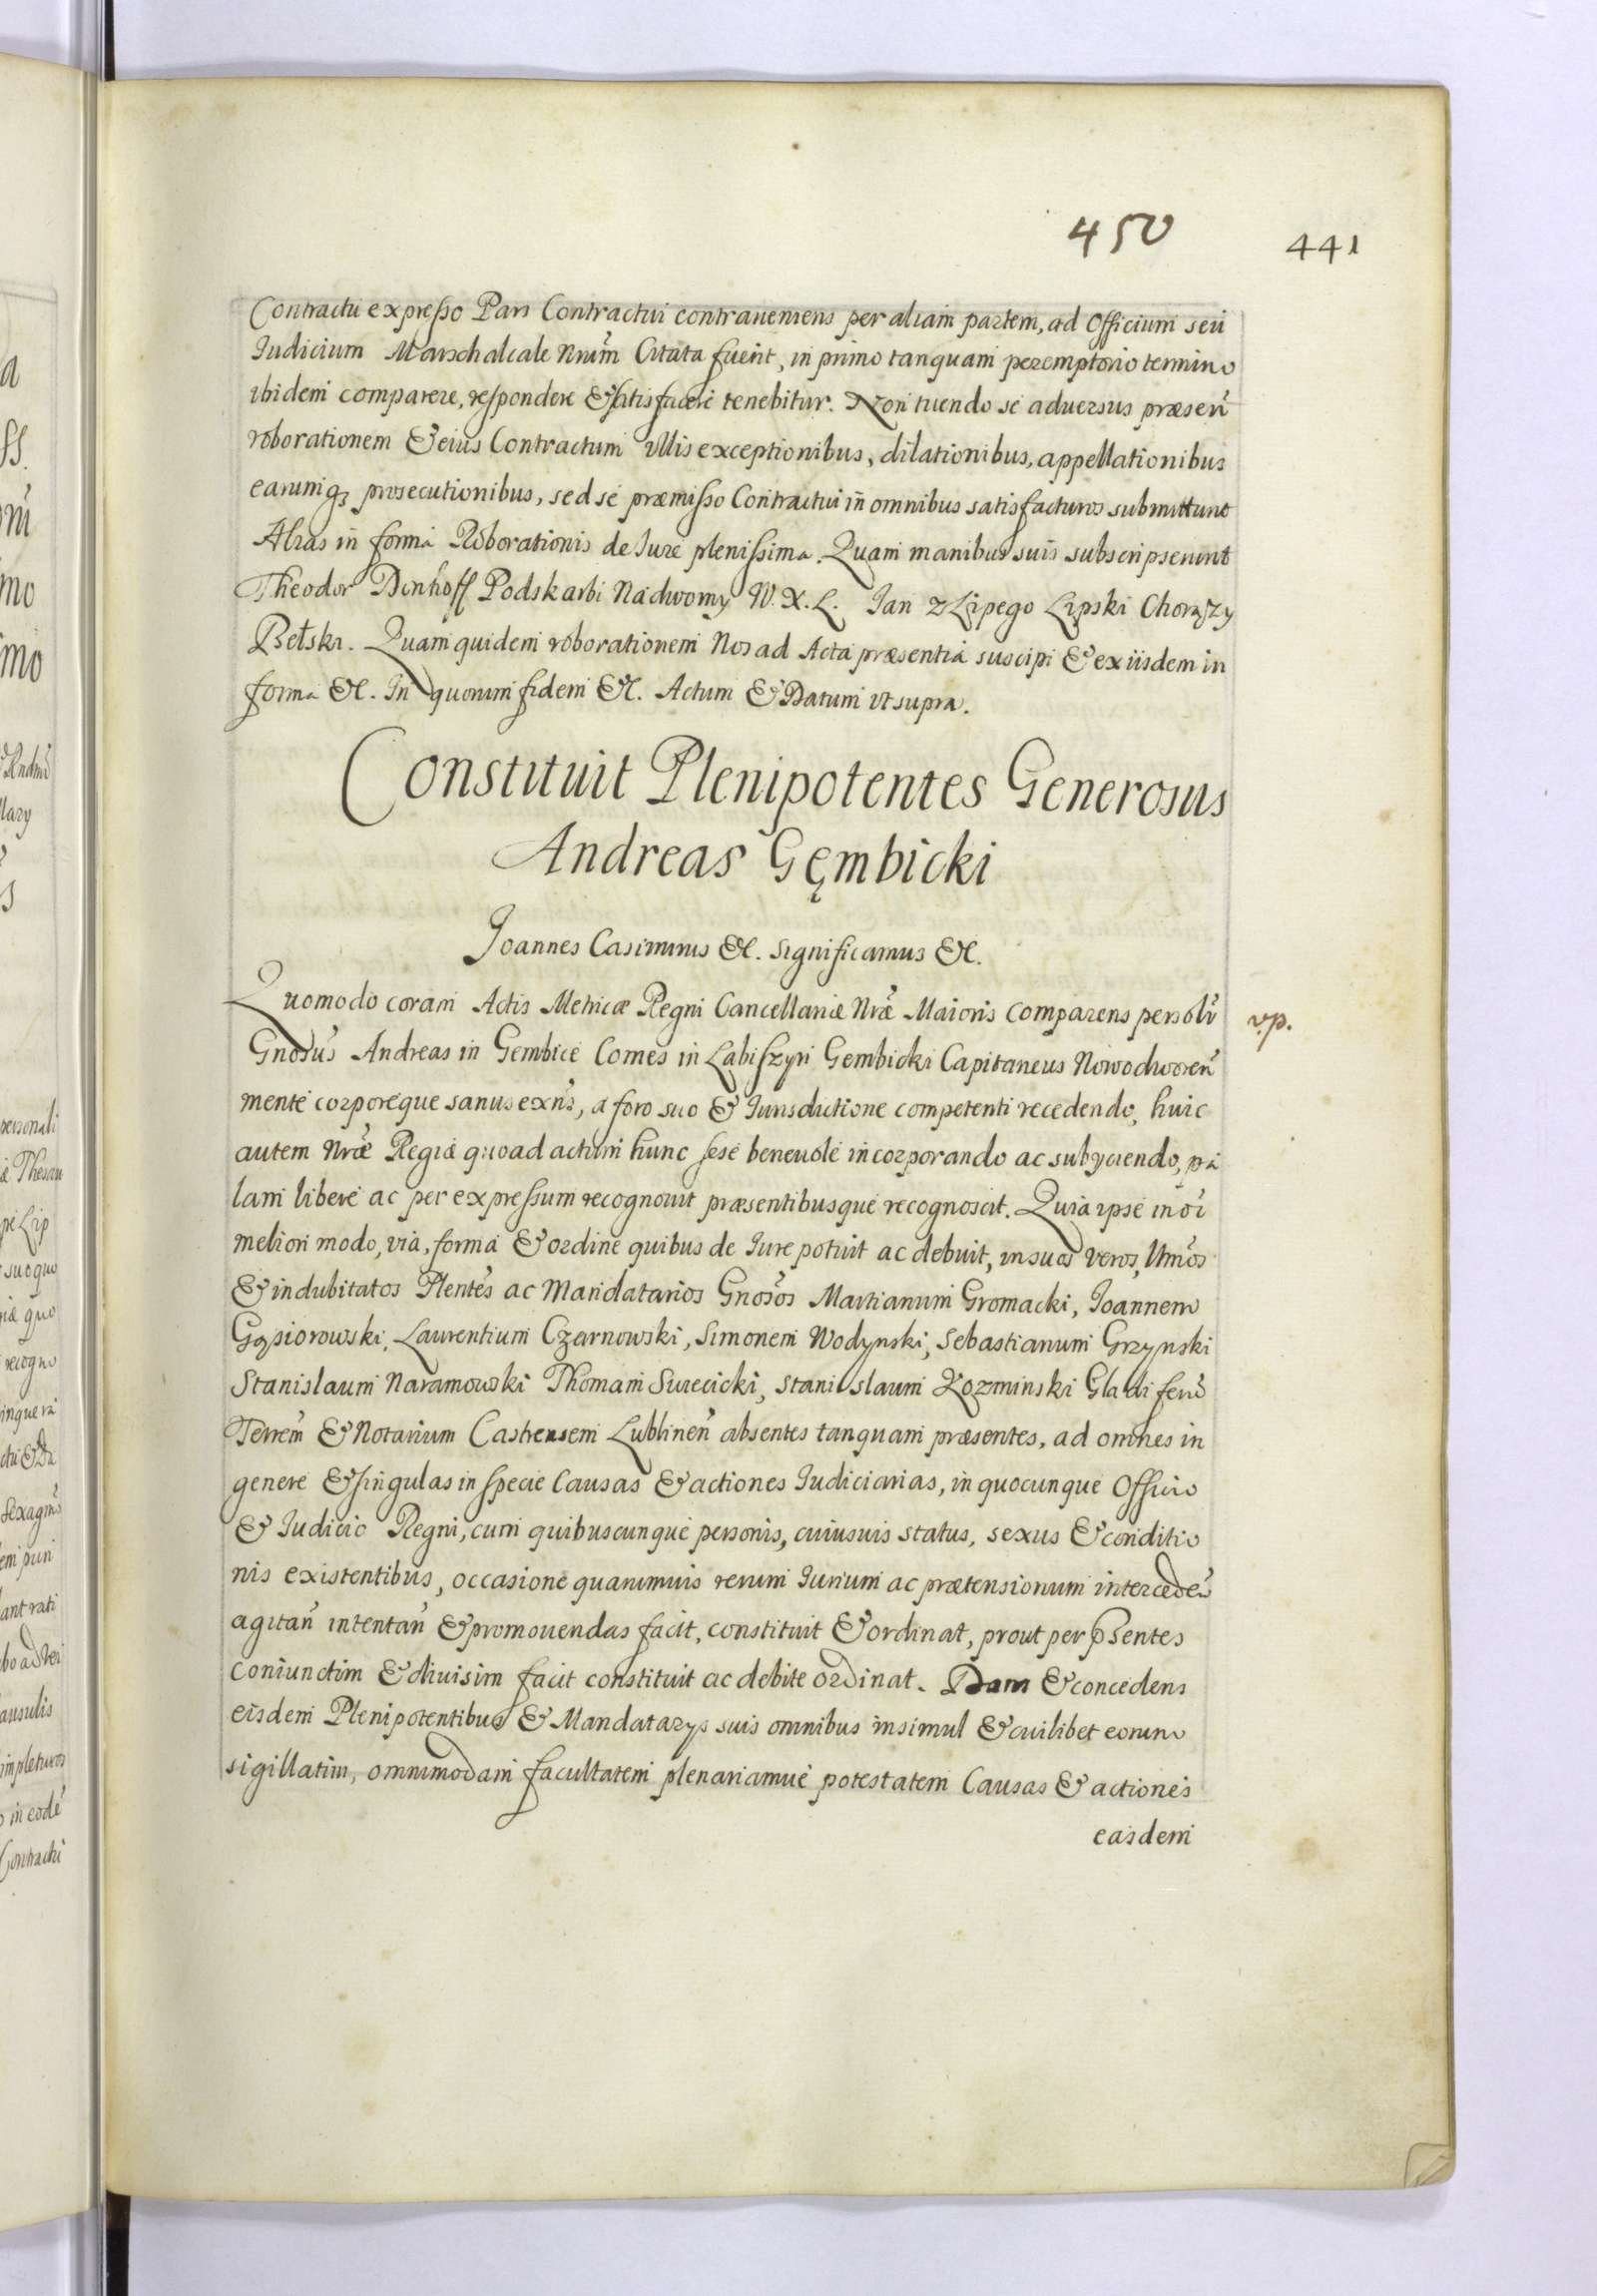 450
441
Contractu expresso Pars Contractui contraueniens per aliam partem, ad Officium seu
Iudicium Marschalcale Nrũm Citata fuerit, in primo tanquam peremptorio termino
ibidem comparere, respondere & satisfacere tenebitur. Non tuendo se aduersus præseñ
roborationem & eius Contractum vllis exceptionibus, dilationibus, appellationibus
earumq₃ prosecutionibus, sed se præmisso Contractui in omnibus satisfacturos submittunt
Alias in forma Roborationis de Iure plenissima. Quam manibus suis subscripserunt
Theodor Denhoff Podskarbi Nadworny W. X. L. Ian z Lipego Lipski Chorąży
Bełski. Quam quidem roborationem Nos ad Acta præsentia suscipi & ex iisdem in
forma &c. In quorum fidem &c. Actum & Datum vt supra.
Constituit Plenipotentes Generosus
Andreas Gęmbicki
Ioannes Casimirus &c. Significamus &c.
Quomodo coram Actis Metricæ Regni Cancellariæ Nræ̃ Maioris comparens persolr̃
vp.
Gnosũs Andreas in Gembice Comes in Labiszyn Gembicki Capitaneus Nowodworeñ
mente corporeque sanus exñs, a foro suo & Iurisdictione competenti recedendo, huic
autem Nræ̃ Regiæ quoad actum hunc sese beneuole incorporando ac subyciendo, pa
lam libere ac per expressum recognouit præsentibusque recognoscit. Quia ipse in oĩ
meliori modo, via, forma & ordine quibus de Iure potuit ac debuit, in suos veros, ltmõs
& indubitatos Plentẽs ac Mandatarios Gnosõs Martianum Gromacki, Ioannem
Gąsiorowski, Laurentium Czarnowski, Simonem Wodynski, Sebastianum Grzynski
Stanislaum Naramowski Thomam Surecicki, Stanislaum Kozminski Gladiferũ
Terrem̃ & Notarium Castrensem Lublineñ absentes tanquam præsentes, ad omnes in
genere & singulas in specie Causas & actiones Iudiciarias, in quocunque Officio
& Iudicio Regni, cum quibuscunque personis, cuiusuis status, sexus & conditio
nis existentibus, occasione quarumuis rerum Iurium ac prætensionum intercedeñ
agitañ intentañ & promouendas facit, constituit & ordinat, prout per pñsentes
coniunctim & diuisim facit constituit ac debite ordinat. Dans & concedens
eisdem Plenipotentibus & Mandatarys suis omnibus insimul & cuilibet eorum
sigillatim, omnimodam facultatem plenariamue potestatem Causas & actiones
easdem